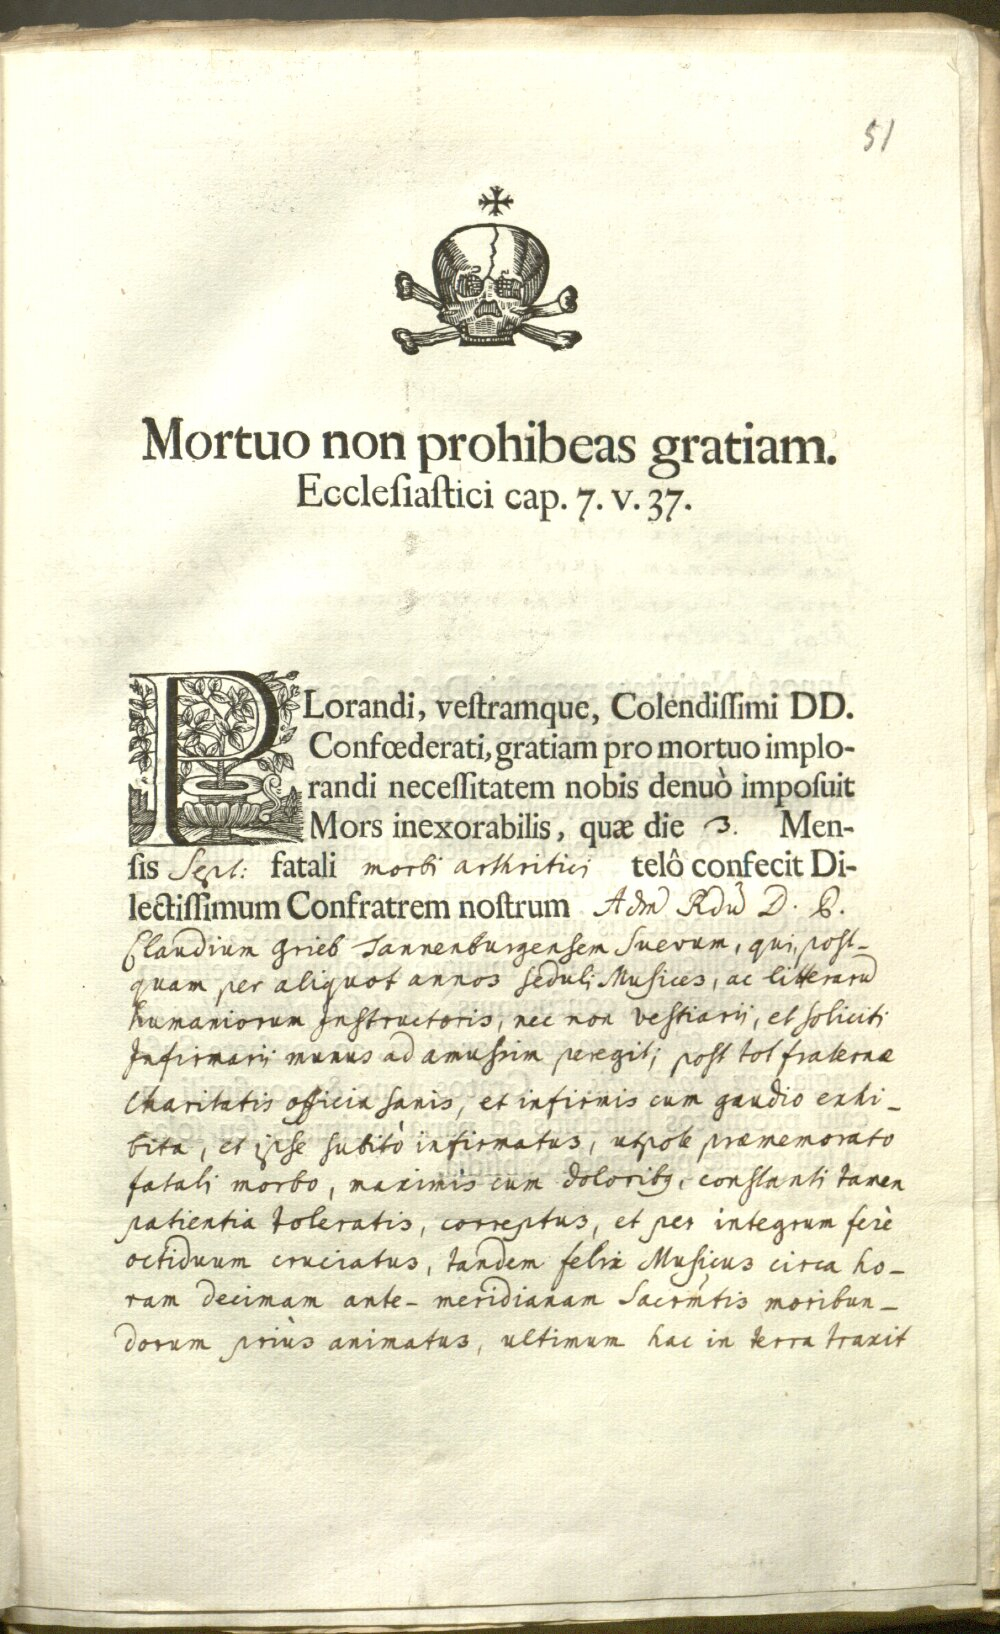 51
Mortuo non prohibeas gratiam.
Eccleſiaſtici cap. 7. v. 37.
PLorandi, veſtramque, Colendiſſimi DD.
Confœderati, gratiam pro mortuo implo-
randi neceſſitatem nobis denuò impoſuit
Mors inexorabilis, quæ die 3. Men-
ſis Sept: fatali morbi arthritici telô confecit Di-
lectiſſimum Confratrem noſtrum Adm Rdũ D. P.
Claudium Grieb Tannenburgensem Suevum, qui, post-
quam per aliquot annos seduli Musices, ac litterarũ
humaniorum Instructoris, nec non vestiarii, et soliciti
Infirmarii munus ad amussim peregit; post tot fraternæ
Charitatis officia sanis, et infirmis cum gaudio exhi-
bita, et ipse subitò infirmatus, utpote præmemorato
fatali morbo, maximis cum doloribq, constanti tamen
patientia toleratis, correptus, et per integrum ferè
octiduum cruciatus, tandem felix Musicus circa ho-
ram decimam ante-meridianam Sacrm̃tis moribun-
dorum priùs animatus, ultimum hac in terra traxit